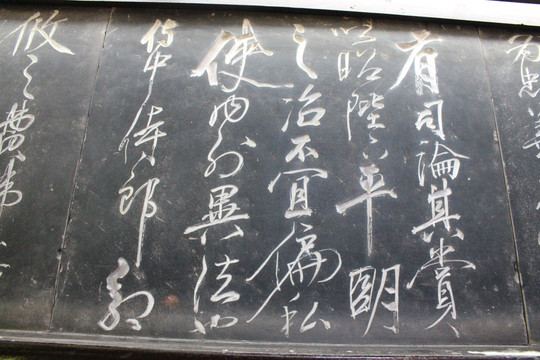 為忠善
有司論其賞
以昭陛下平明
之治不宜偏私
使內外異法也
侍中侍郎郭
攸之費禕